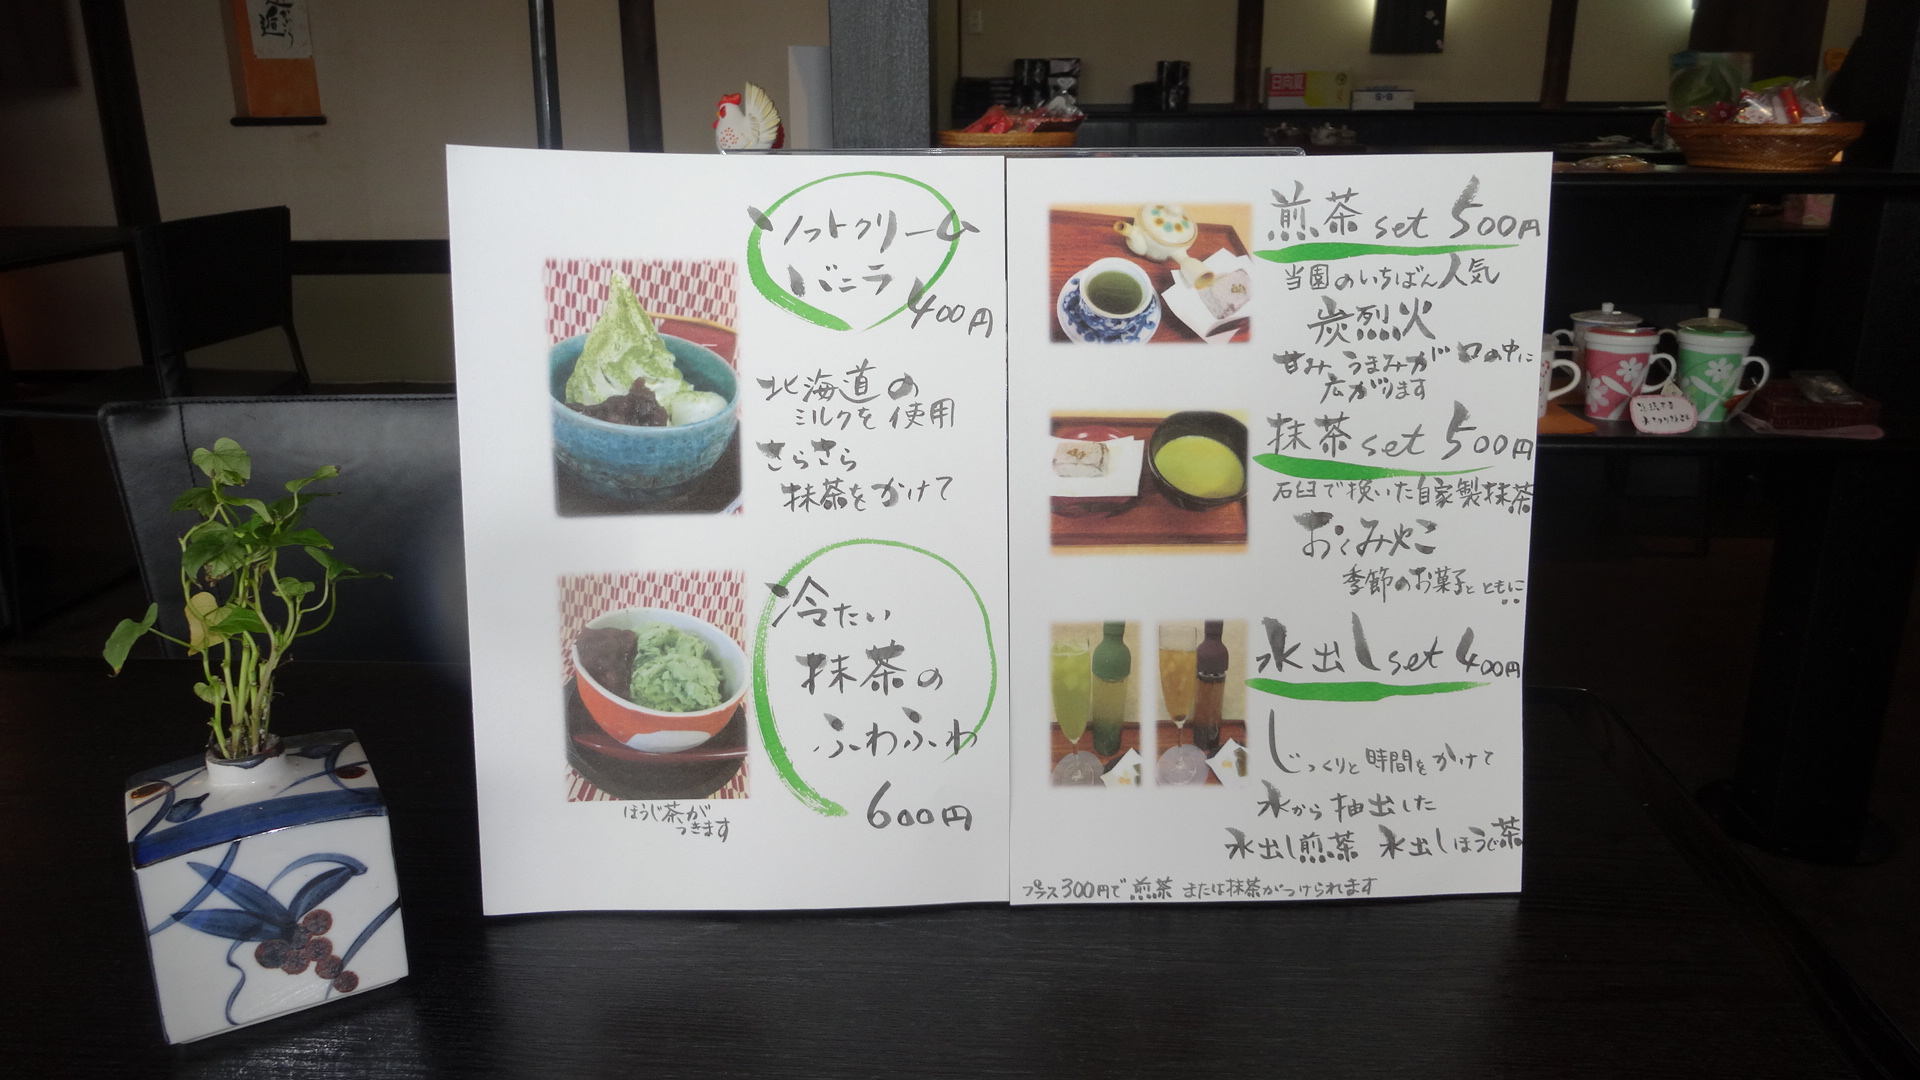 ソフトクリーム
バニラ
400円
北海道の
ミルクを使用
さらさら
抹茶をかけて
冷たい
抹茶の
ふわふわ
600円
ほうじ茶が
つきます
煎茶set 500円
当園のいちばん人気
炭烈火
甘み うまみが 口の中に
広がります
抹茶set 500円
石臼で挽いた自家製抹茶
おくみやこ
季節のお菓子とともに
水出しset 400円
じっくりと時間をかけて
水から抽出した
水出し煎茶 水出しほうじ茶
プラス300円で煎茶または抹茶がつけられます
日向夏